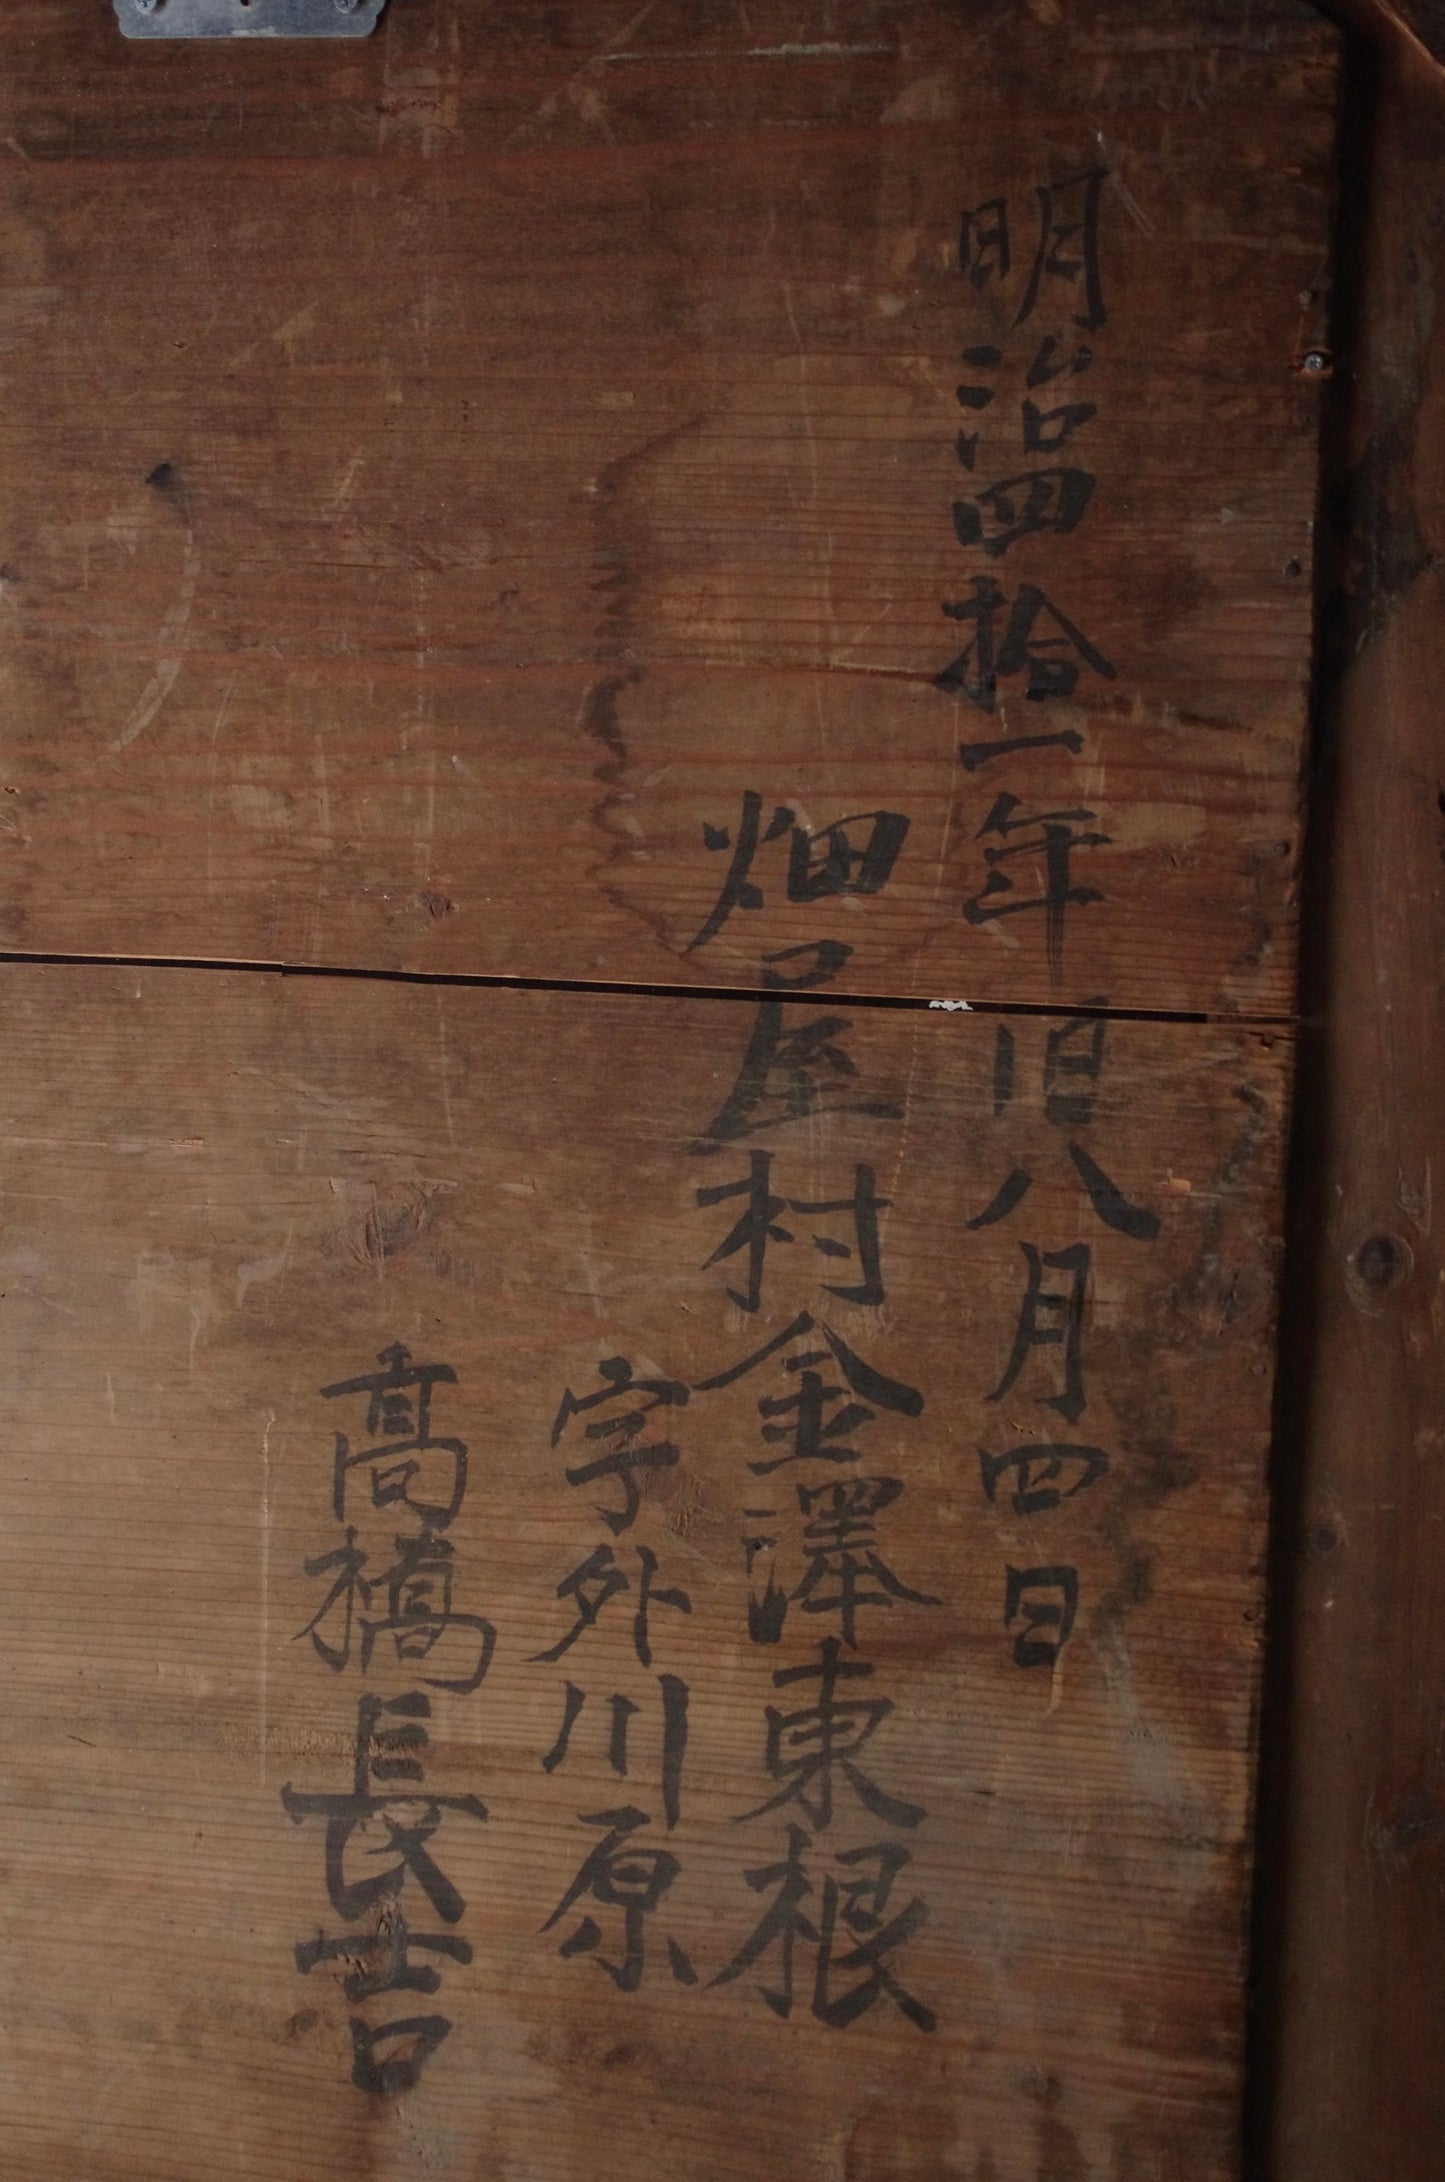 明治四拾一年旧八月四日
畑屋村金澤東根
字外川原
髙橋長吉